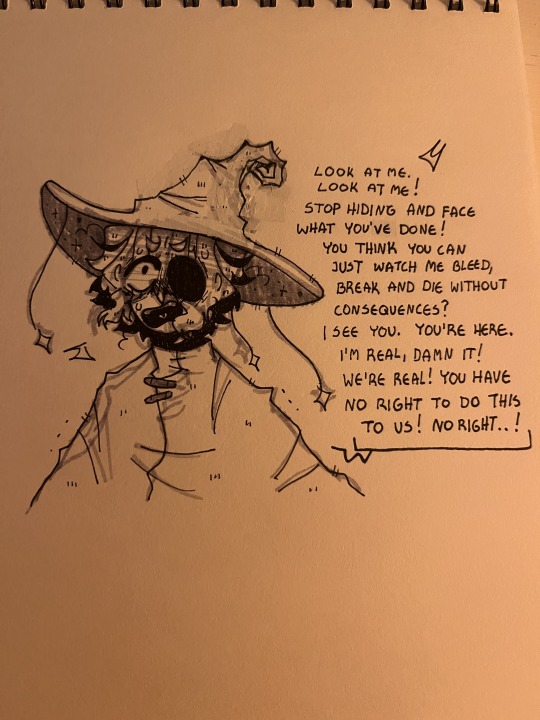 LOOK AT ME.
LOOK AT ME!
STOP HIDING AND FACE
WHAT YOU'VE DONE!
YOU THINK YOU CAN
JUST WATCH ME BLEED,
BREAK AND DIE WITHOUT
CONSEQUENCES?
I SEE YOU. YOU'RE HERE.
I'M REAL, DAMN IT!
WE'RE REAL! YOU HAVE
NO RIGHT TO DO THIS
TO US! NO RIGHT..!